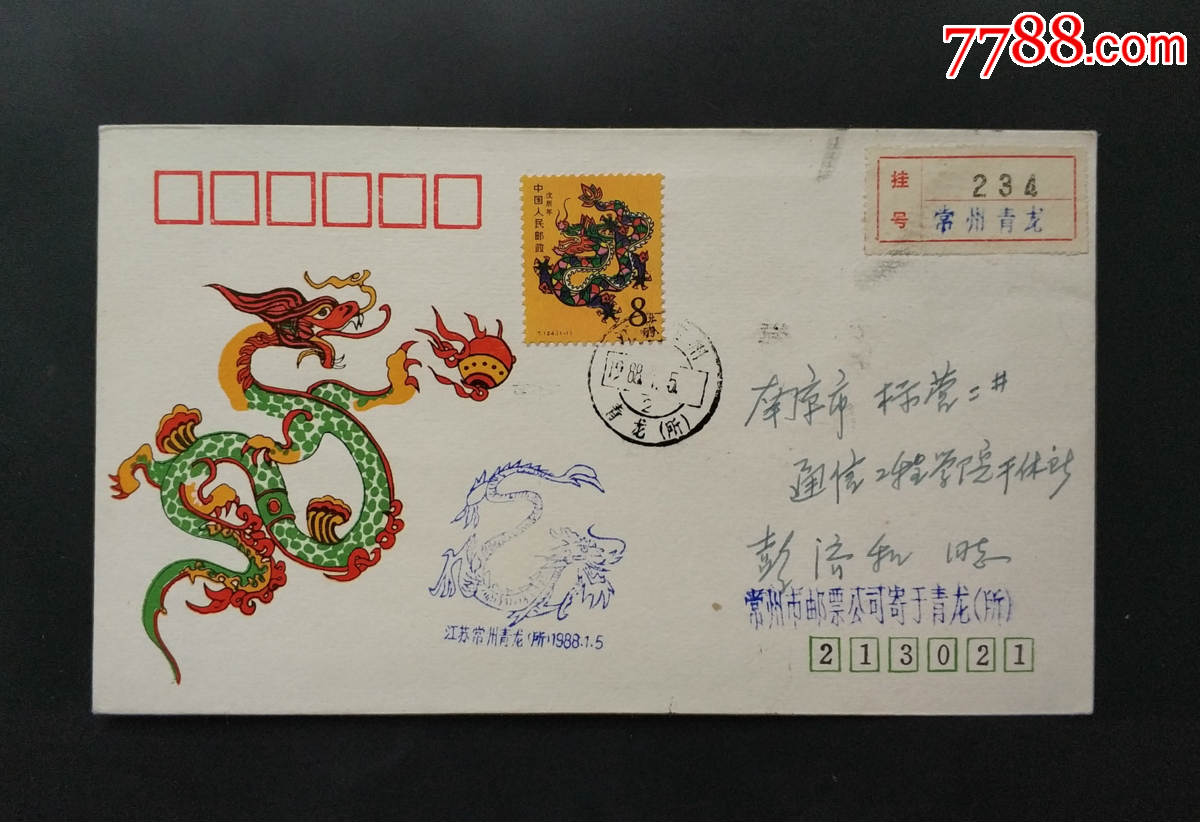 7788.com
挂号
234
常州青龙
中国人民邮政
戊辰年
8分
T.124.(1-1)
1988.1.5
2
青龙(所)
南京市 标营二井
通信工程学院干休所
彭济和 同志
常州市邮票公司寄于青龙(所)
213021
江苏常州青龙(所)1988.1.5